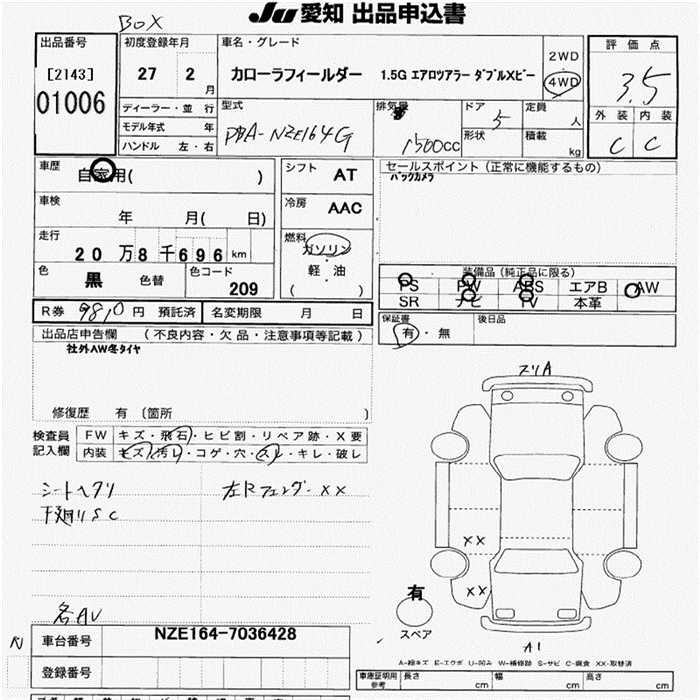 BOX
JU 愛知 出品申込書
出品番号
[2143]
01006
初度登録年月
27 2 月
ディーラー・並 行
モデル年式 年
ハンドル 左・右
車名・グレード
カローラフィールダー 1.5G エアロツアラー ダブルXビー
2WD
4WD
型式
DBA-NZE164G
排気量
1500cc
ドア
5
形状
定員
人
積載
kg
評 価 点
3.5
外 装 内 装
C C
車歴
自家用( )
車検
年 月( 日)
走行
20万8千696 km
色
黒 色替
色コード
209
シフト
AT
冷房
AAC
燃料
ガソリン
軽・油
( )
セールスポイント (正常に機能するもの)
バックカメラ
装備品 (純正品に限る)
PS PW ABS エアB AW
SR ナビ TV 本革
R券 9810 円 預託済 名変期限 月 日
保証書
有・無
後日品
出品店申告欄 (不良内容・欠品・注意事項等記載)
社外AW冬タイヤ
修復歴 有 〔箇所 〕
検査員
記入欄
FW キズ・飛石・ヒビ割・リペア跡・X要
内装 キズ・汚レ・コゲ・穴・スレ・キレ・破レ
シートヘタリ 左Rフェンダー××
下廻りSC
スリA
××
××
有
スペア
A1
A-線キズ E-エクボ U-凹み W-補修跡 S-サビ C-腐食 XX-取替済
車台番号 NZE164-7036428
登録番号
車庫証明用
参考
長さ cm 幅 cm 高さ cm